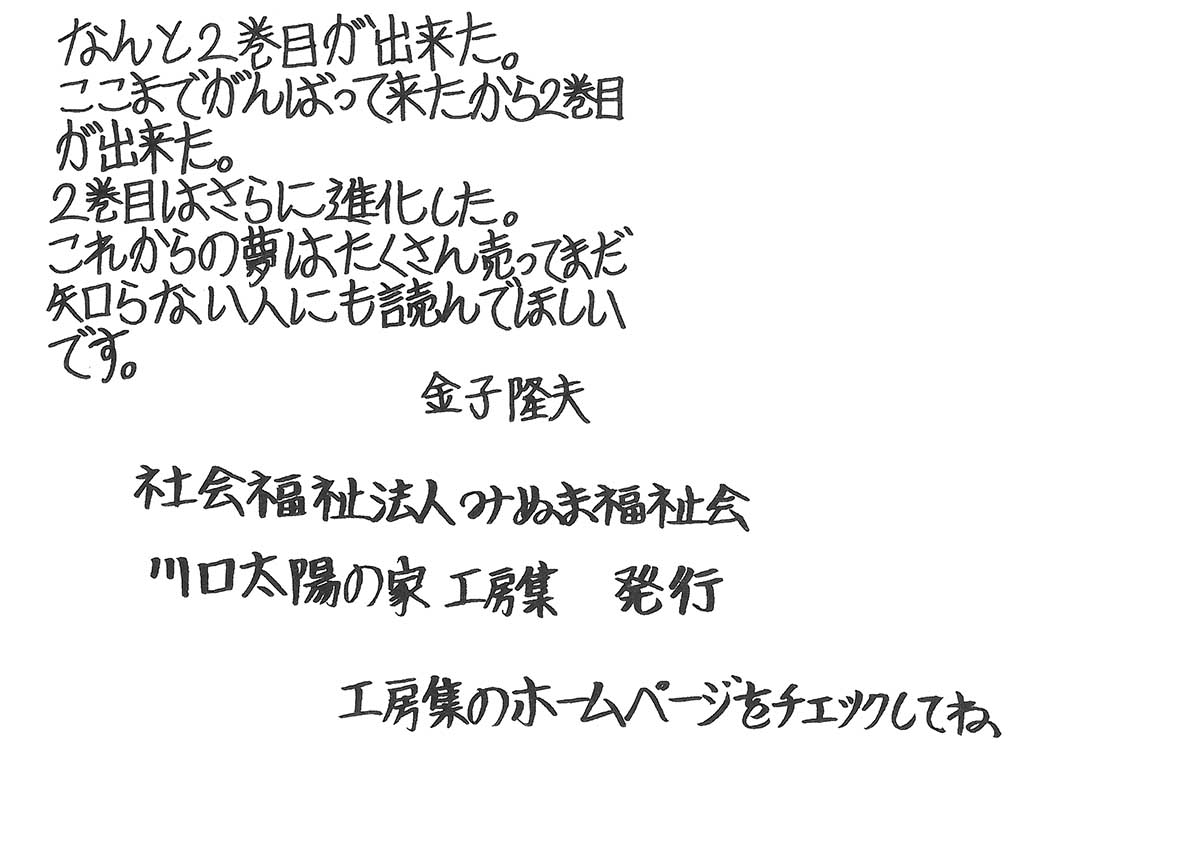 なんと2巻目が出来た。
ここまでがんばって来たから2巻目
が出来た。
2巻目はさらに進化した。
これからの夢はたくさん売ってまだ
知らない人にも読んでほしい
です。
金子隆夫
社会福祉法人みぬま福祉会
川口太陽の家 工房集 発行
工房集のホームページをチェックしてね、